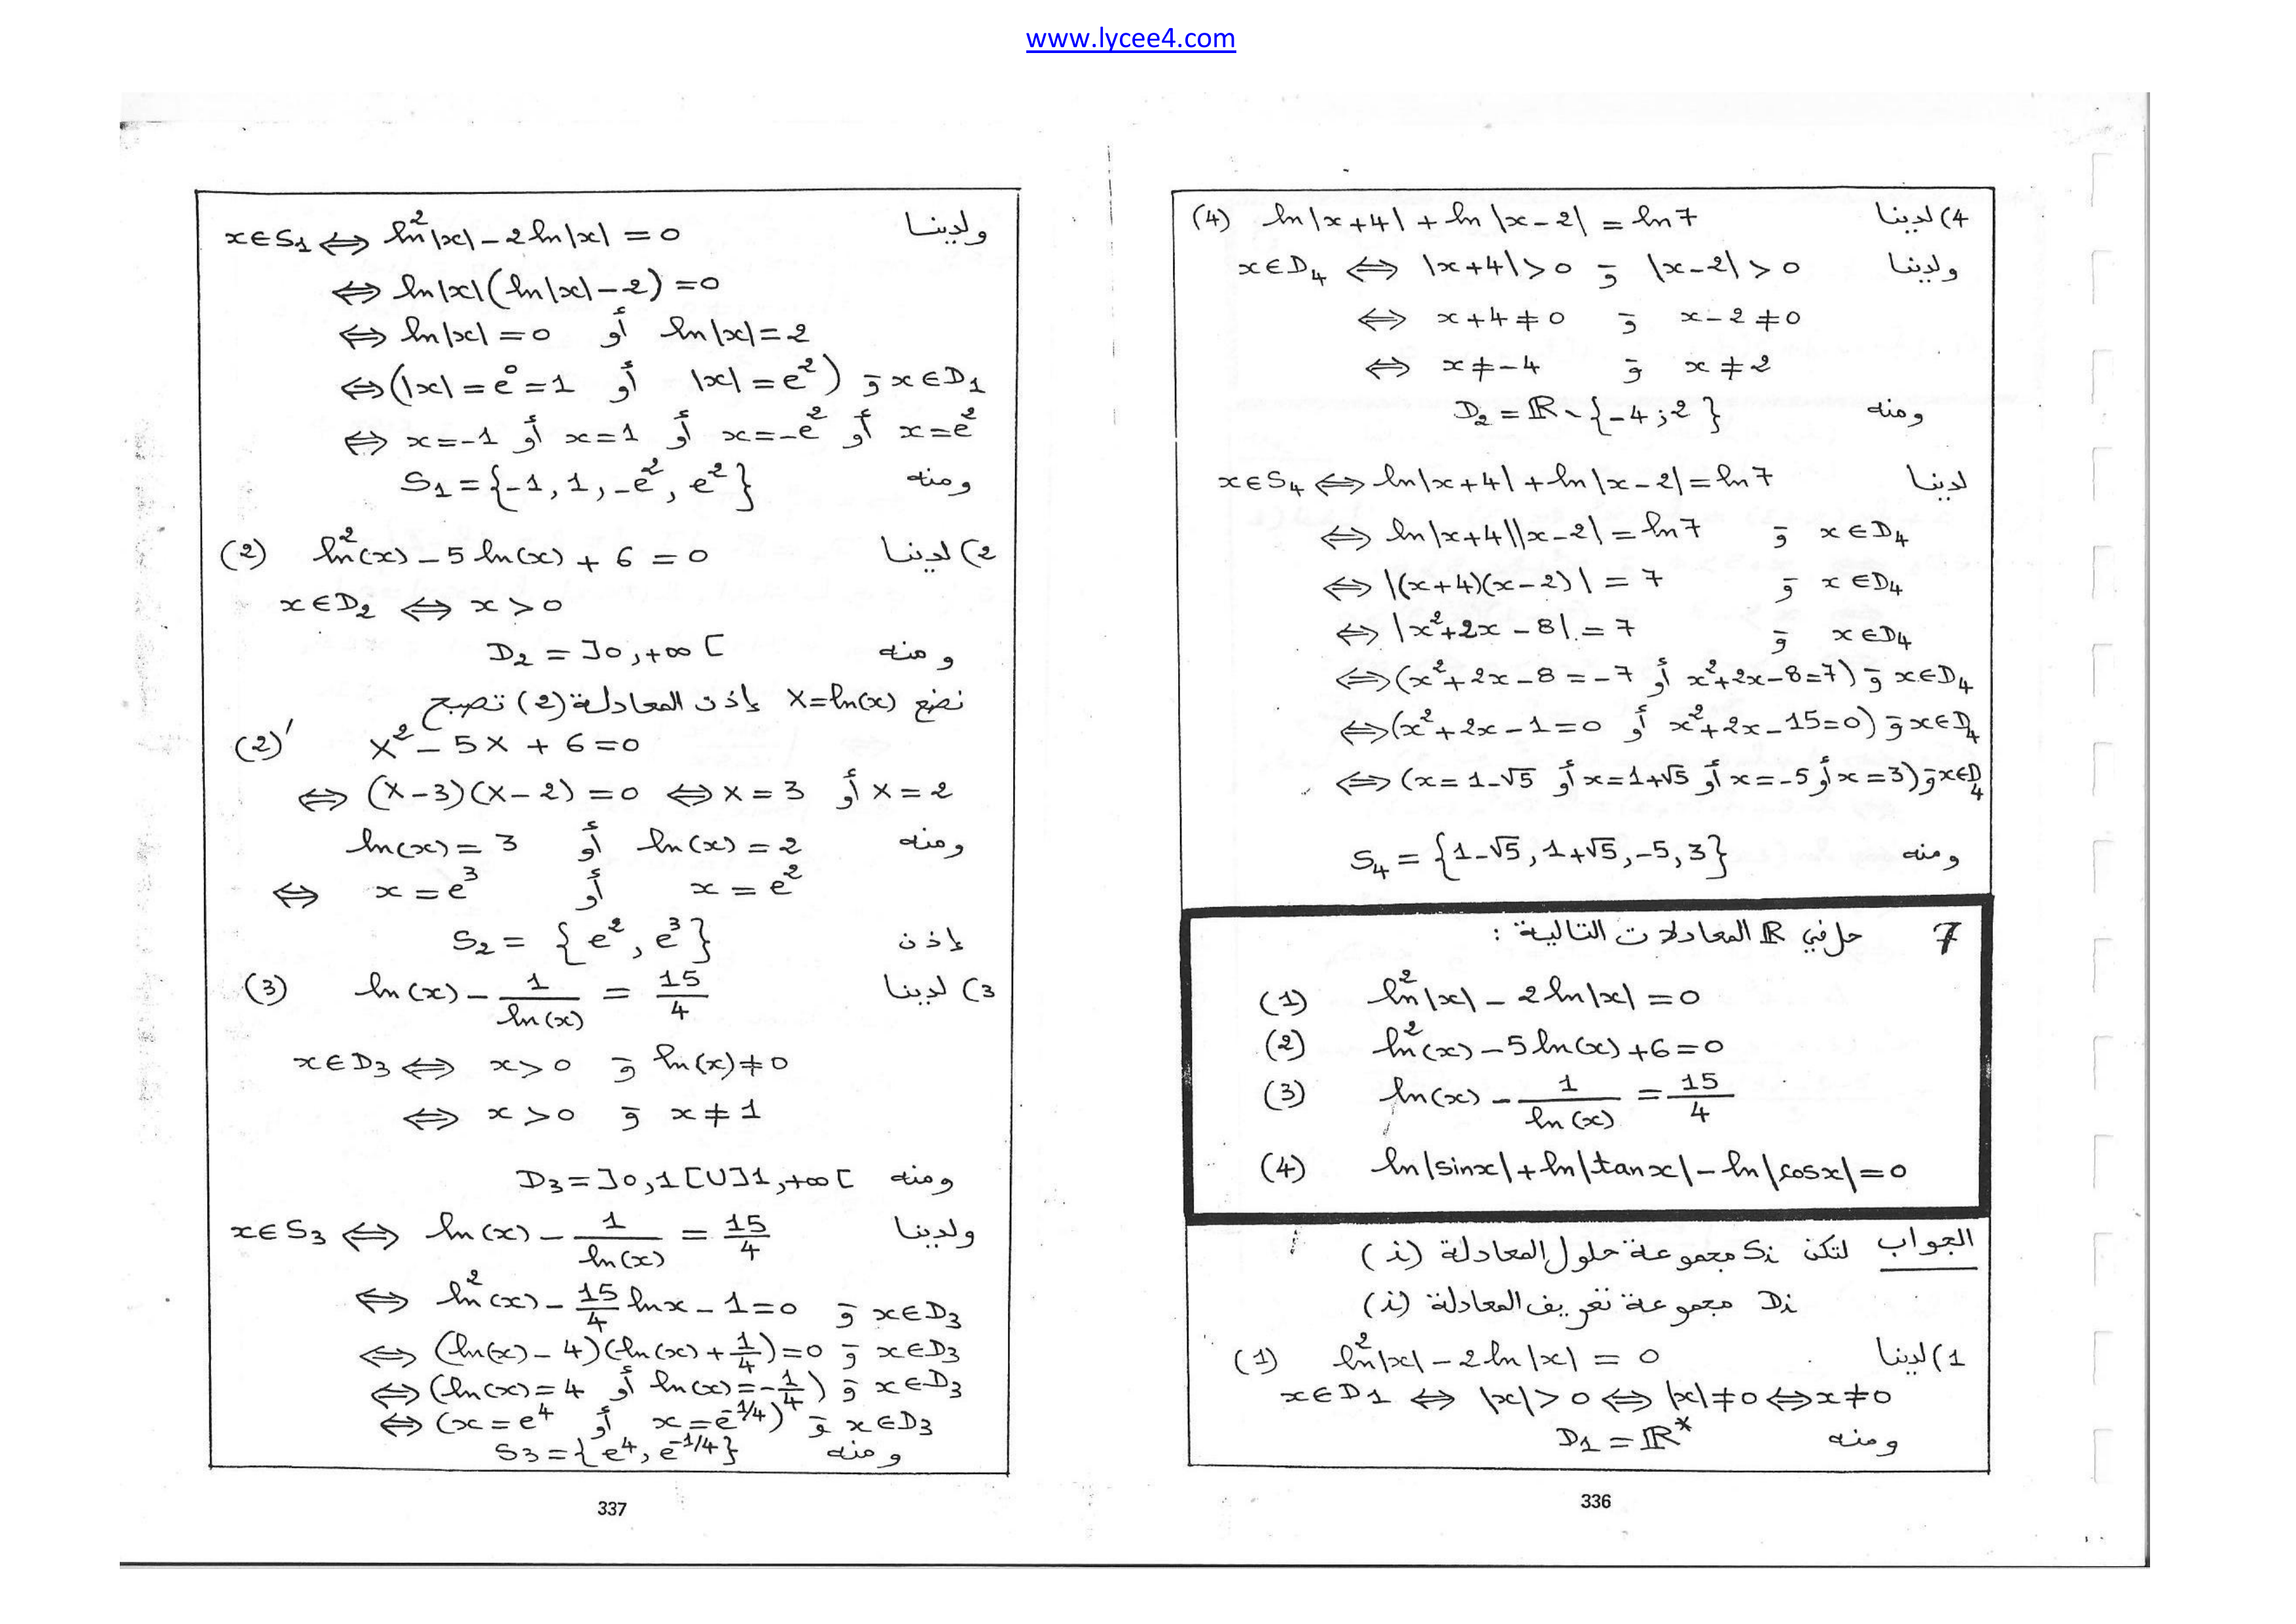 www.lycee4.com
4) لدينا (4) ln|x+4| + ln|x-2| = ln7
ولدينا x∈D₄ ⇔ |x+4|>0 و |x-2|>0
⇔ x+4≠0 و x-2≠0
⇔ x≠-4 و x≠2
ومنه D₂ = ℝ-{-4;2}
لدينا x∈S₄ ⇔ ln|x+4|+ln|x-2|=ln7
⇔ ln|x+4||x-2|=ln7 و x∈D₄
⇔ |(x+4)(x-2)| = 7 و x∈D₄
⇔ |x²+2x-8| = 7 و x∈D₄
⇔ (x²+2x-8=-7 أو x²+2x-8=7) و x∈D₄
⇔ (x²+2x-1=0 أو x²+2x-15=0) و x∈D₄
⇔ (x=1-√5 أو x=1+√5 أو x=-5 أو x=3) و x∈D₄
ومنه S₄ = {1-√5, 1+√5, -5, 3}
7 حل في ℝ المعادلات التالية :
(1) ln²|x| - 2ln|x| = 0
(2) ln²(x) - 5ln(x) + 6 = 0
(3) ln(x) - 1/ln(x) = 15/4
(4) ln|sinx| + ln|tanx| - ln|cosx| = 0
الجواب لتكن Si مجموعة حلول المعادلة (i)
Di مجموعة تعريف المعادلة (i)
1) لدينا (1) ln²|x| - 2ln|x| = 0
x∈D₁ ⇔ |x|>0 ⇔ |x|≠0 ⇔ x≠0
ومنه D₁ = ℝ*
336
ولدينا x∈S₁ ⇔ ln²|x| - 2ln|x| = 0
⇔ ln|x|(ln|x|-2) = 0
⇔ ln|x| = 0 أو ln|x| = 2
⇔ (|x| = e⁰ = 1 أو |x| = e²) و x∈D₁
⇔ x=-1 أو x=1 أو x=-e² أو x=e²
ومنه S₁ = {-1, 1, -e², e²}
2) لدينا (2) ln²(x) - 5ln(x) + 6 = 0
x∈D₂ ⇔ x>0
ومنه D₂ = ]0,+∞[
نضع X=ln(x) إذن المعادلة (2) تصبح
(2)' X² - 5X + 6 = 0
⇔ (X-3)(X-2) = 0 ⇔ X=3 أو X=2
ومنه ln(x) = 3 أو ln(x) = 2
⇔ x = e³ أو x = e²
إذن S₂ = {e², e³}
3) لدينا (3) ln(x) - 1/ln(x) = 15/4
x∈D₃ ⇔ x>0 و ln(x)≠0
⇔ x>0 و x≠1
ومنه D₃ = ]0,1[∪]1,+∞[
ولدينا x∈S₃ ⇔ ln(x) - 1/ln(x) = 15/4
⇔ ln²(x) - 15/4 lnx - 1 = 0 و x∈D₃
⇔ (ln(x)-4)(ln(x)+1/4) = 0 و x∈D₃
⇔ (ln(x)=4 أو ln(x)=-1/4) و x∈D₃
⇔ (x=e⁴ أو x=e^(-1/4)) و x∈D₃
ومنه S₃ = {e⁴, e^(-1/4)}
337